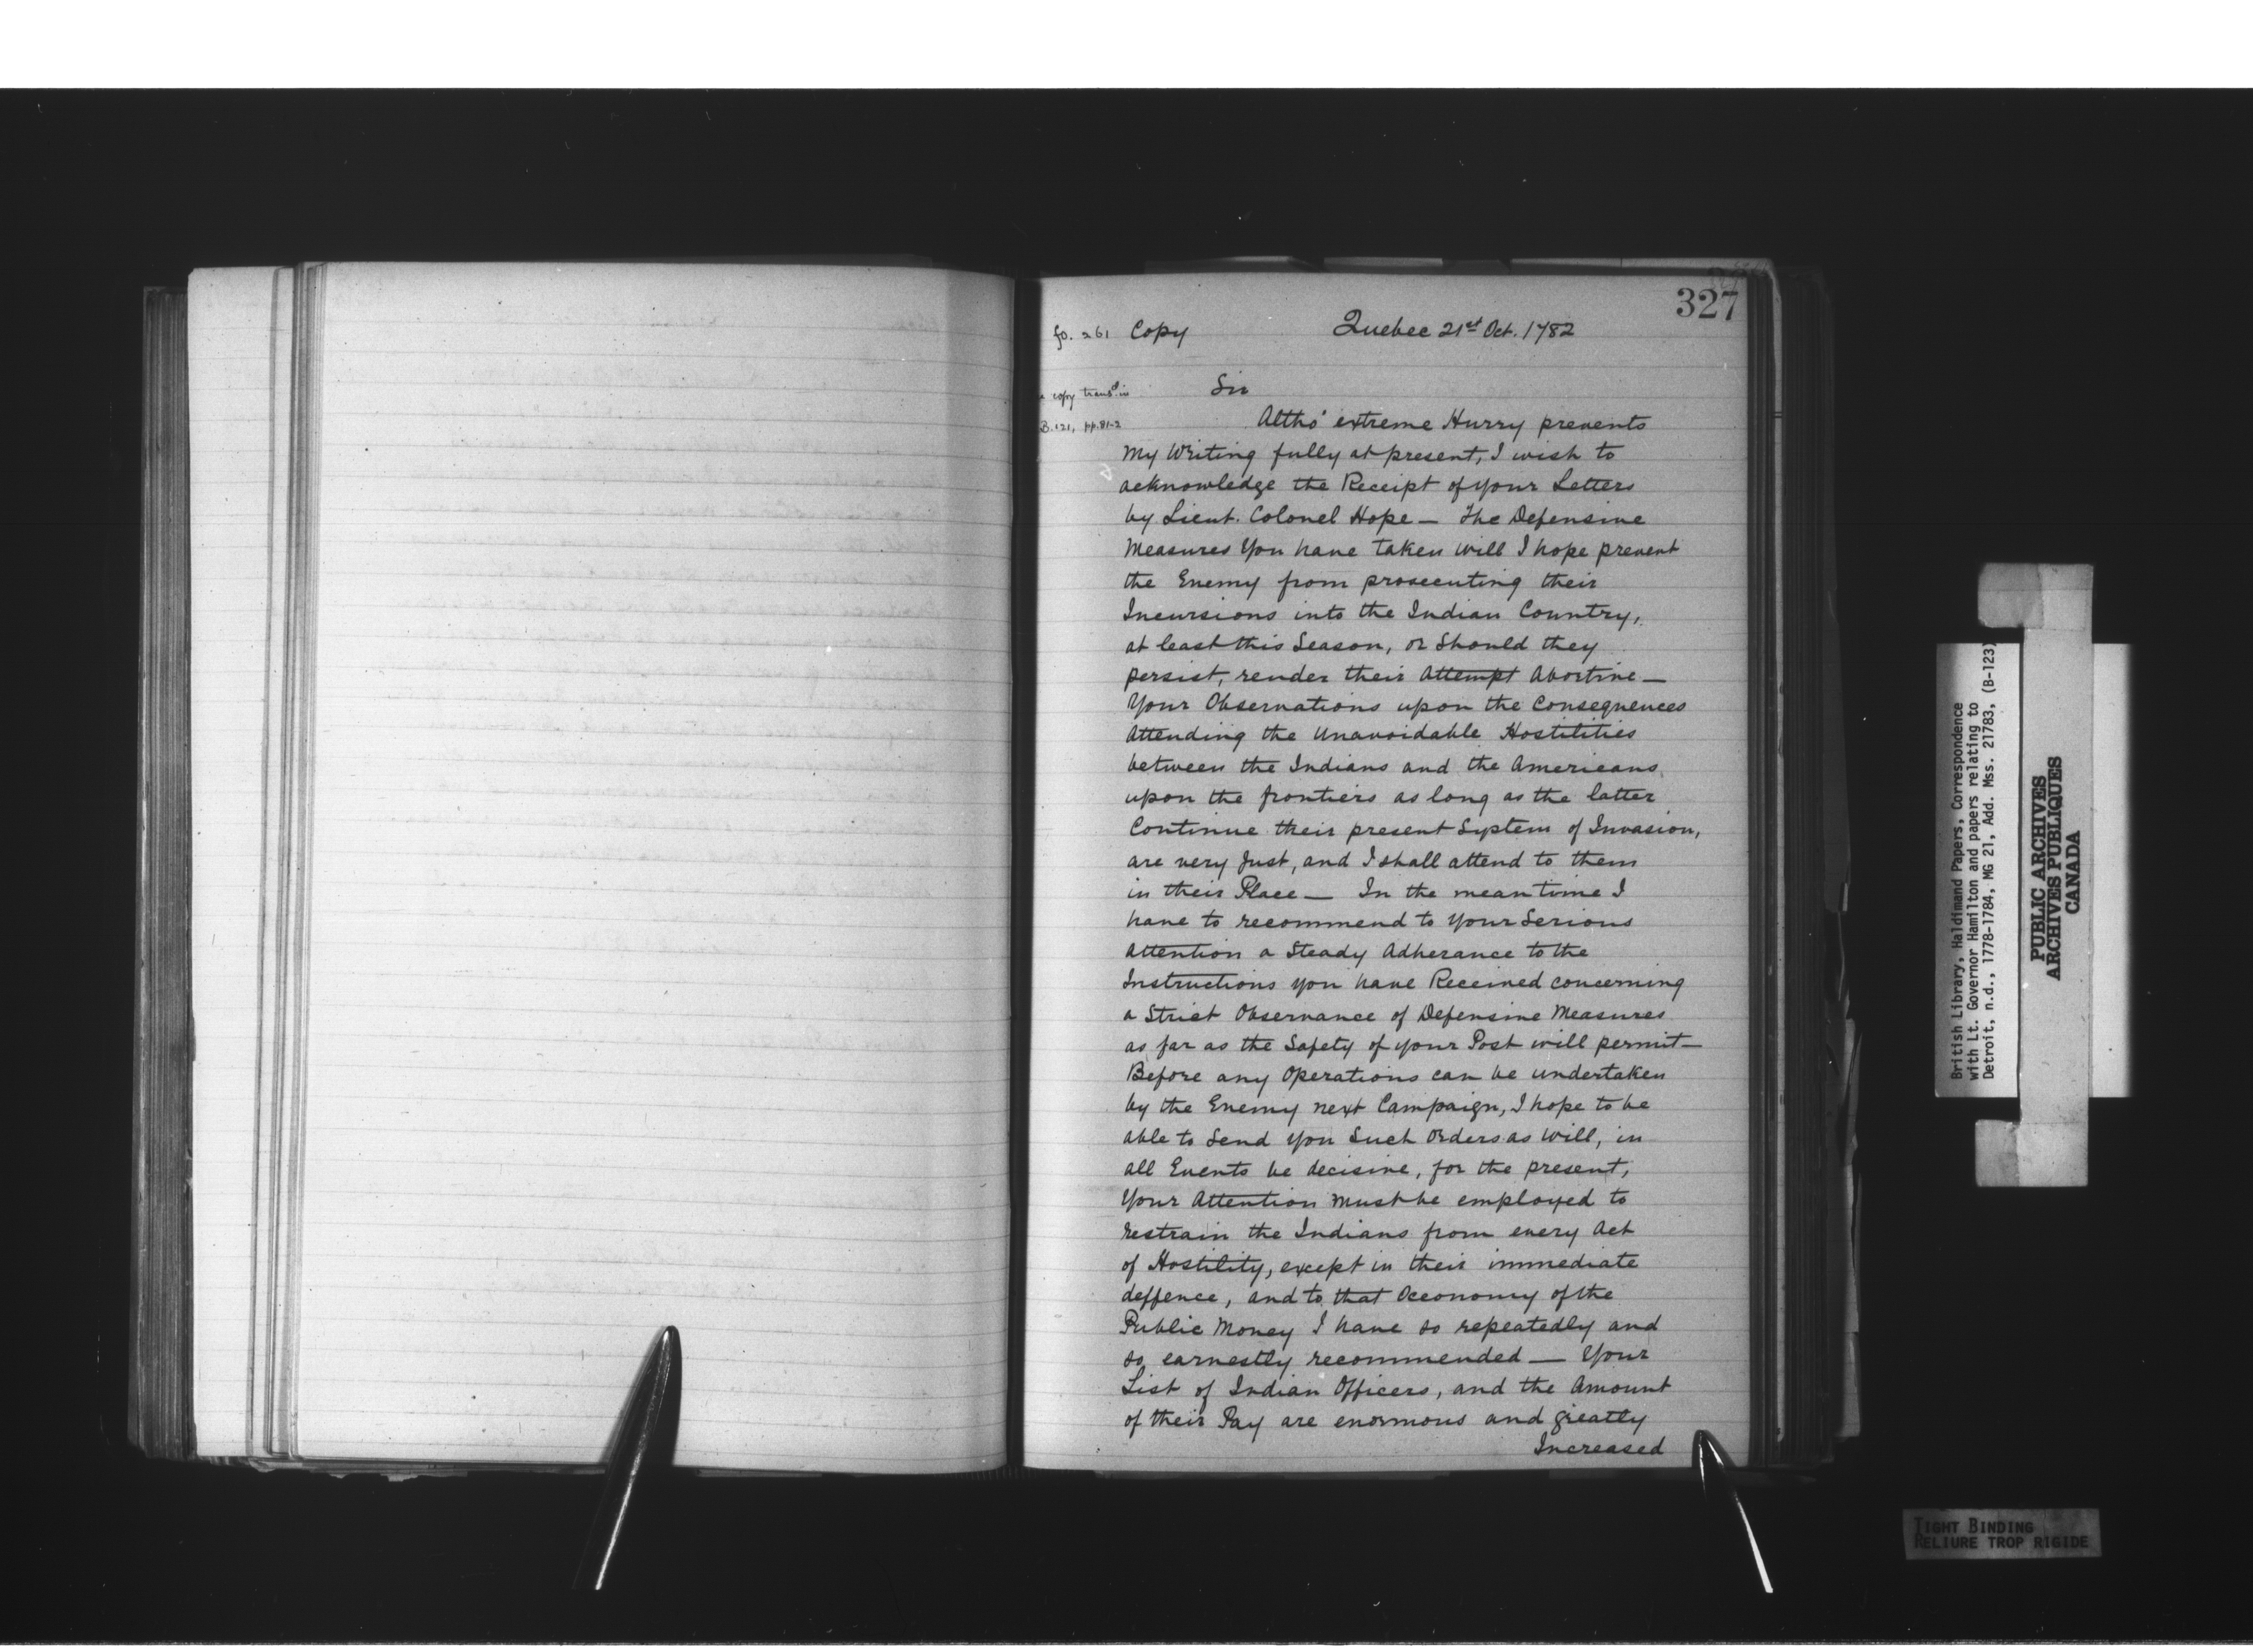 327
fo. 261 Copy Quebec 21st Oct. 1782
copy transd. in
Sir
B.121, pp.81-2
Altho' extreme Hurry prevents
My Writing fully at present, I wish to
acknowledge the Receipt of your Letters
by Lieut. Colonel Hope — The Defensive
Measures You have taken will I hope prevent
the Enemy from prosecuting their
Incursions into the Indian Country,
at least this Season, or Should they
persist, render their Attempt Abortive —
Your Observations upon the Consequences
Attending the Unavoidable Hostilities
between the Indians and the Americans
upon the frontiers as long as the latter
Continue their present System of Invasion,
are very Just, and I shall attend to them
in their Place — In the mean time I
have to recommend to Your Serious
Attention a Steady Adherance to the
Instructions you have Received concerning
a Strict Observance of Defensive Measures
as far as the Safety of your Post will permit —
Before any Operations can be undertaken
by the Enemy next Campaign, I hope to be
able to Send You Such Orders as Will, in
all Events be decisive, for the present,
Your Attention Must be employed to
restrain the Indians from every Act
of Hostility, except in their immediate
deffence, and to that Oeconomy of the
Public Money I have so repeatedly and
so earnestly recommended — Your
List of Indian Officers, and the Amount
of their Pay are enormous and greatly
Increased
British Library, Haldimand Papers, Correspondence
with Lt. Governor Hamilton and papers relating to
Detroit, n.d., 1778-1784, MG 21, Add. Mss. 21783, (B-123)
PUBLIC ARCHIVES
ARCHIVES PUBLIQUES
CANADA
TIGHT BINDING
RELIURE TROP RIGIDE